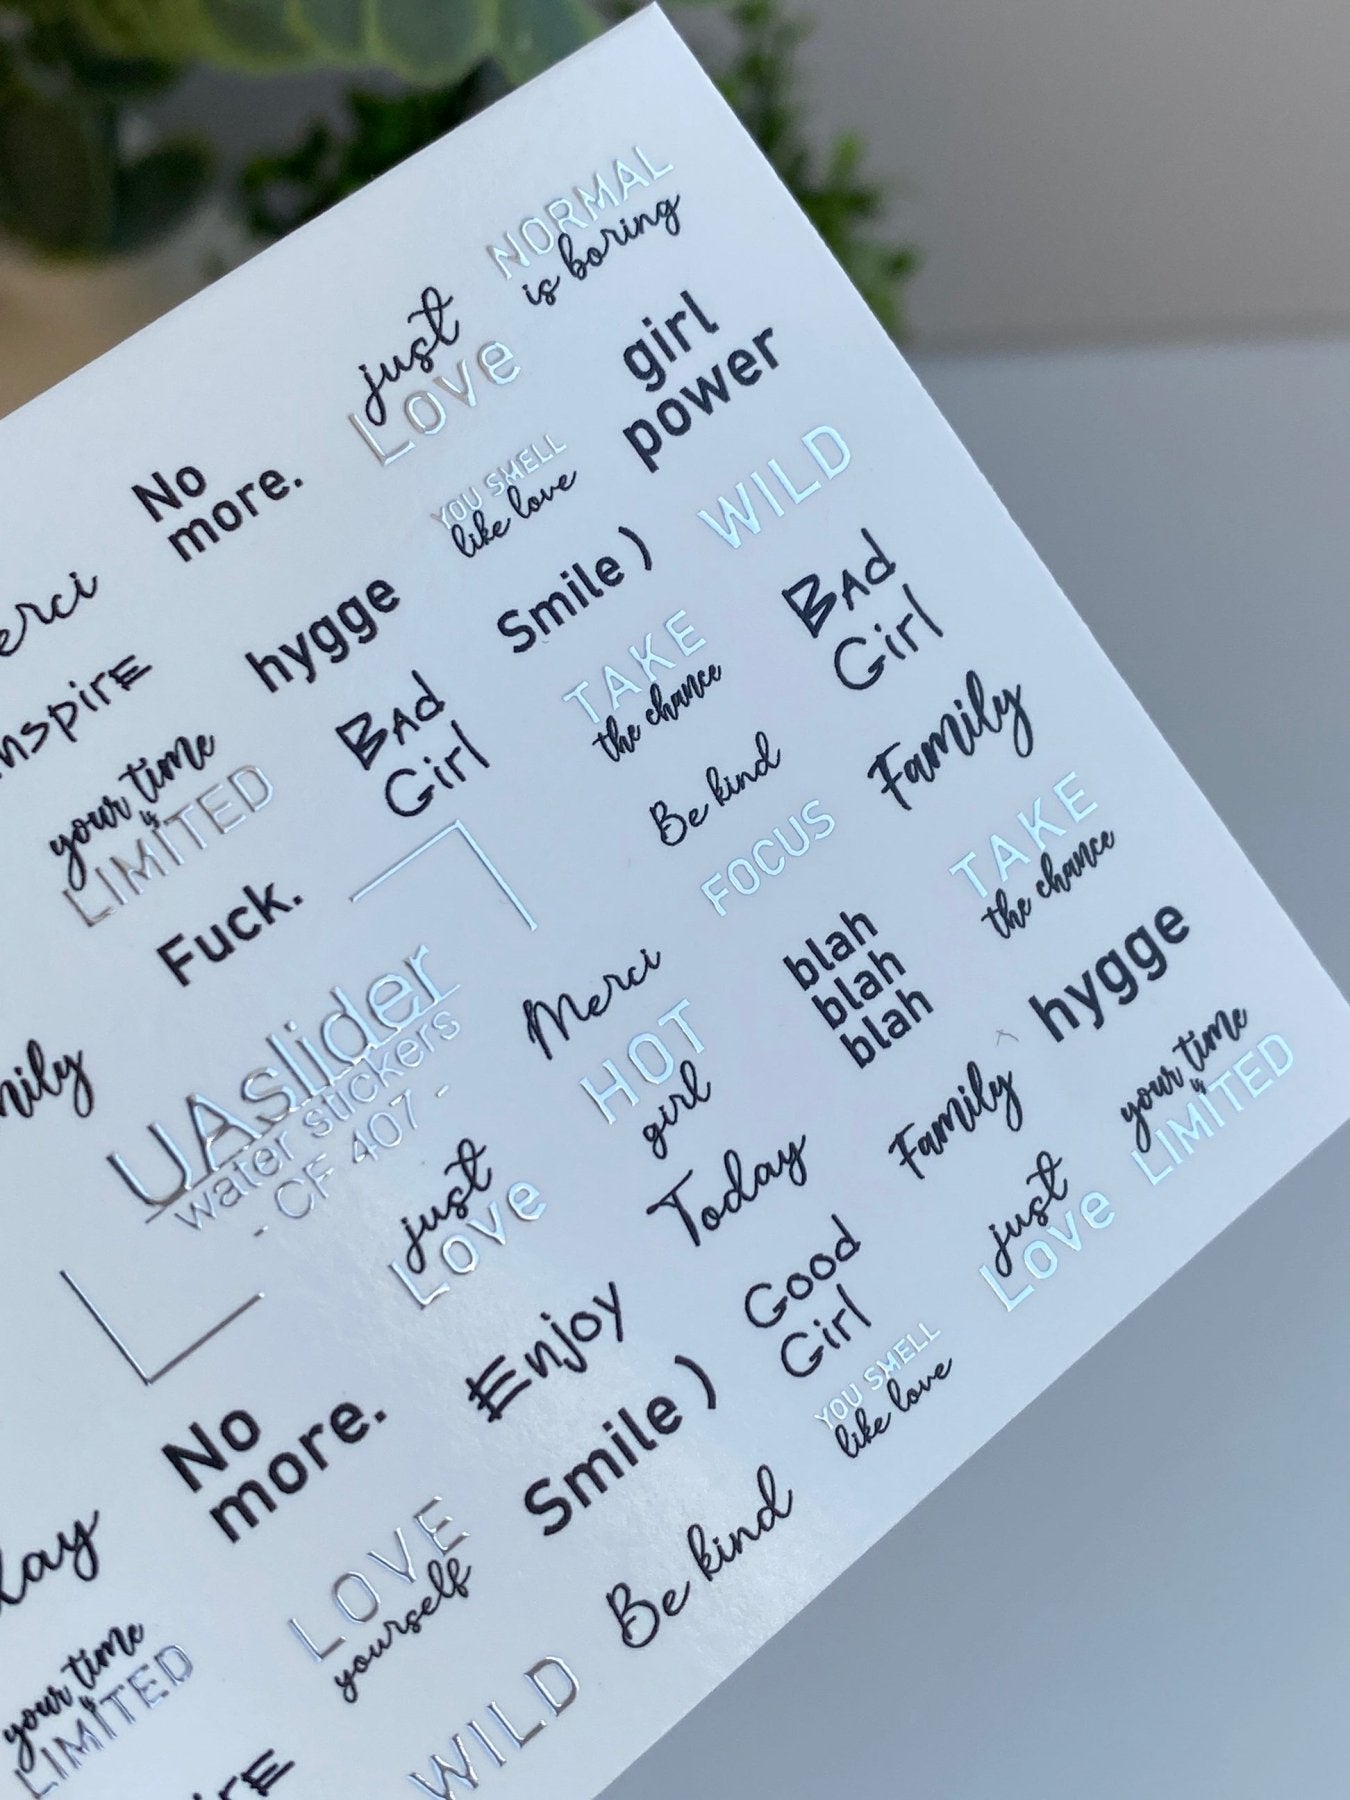 NORMAL
is boring
just
Love
girl
power
No
more.
YOU SMELL
like love
WILD
Smile )
hygge
Bad
Girl
TAKE
the chance
Bad
Girl
your time
is
LIMITED
Be kind
Family
FOCUS
TAKE
the chance
Fuck.
UAslider
water stickers
- CF 407 -
Merci
blah
blah
blah
hygge
HOT
girl
your time
is
LIMITED
Family
Today
just
Love
just
Love
Good
Girl
Enjoy
YOU SMELL
like love
Smile )
No
more.
LOVE
yourself
Be kind
your time
is
LIMITED
WILD